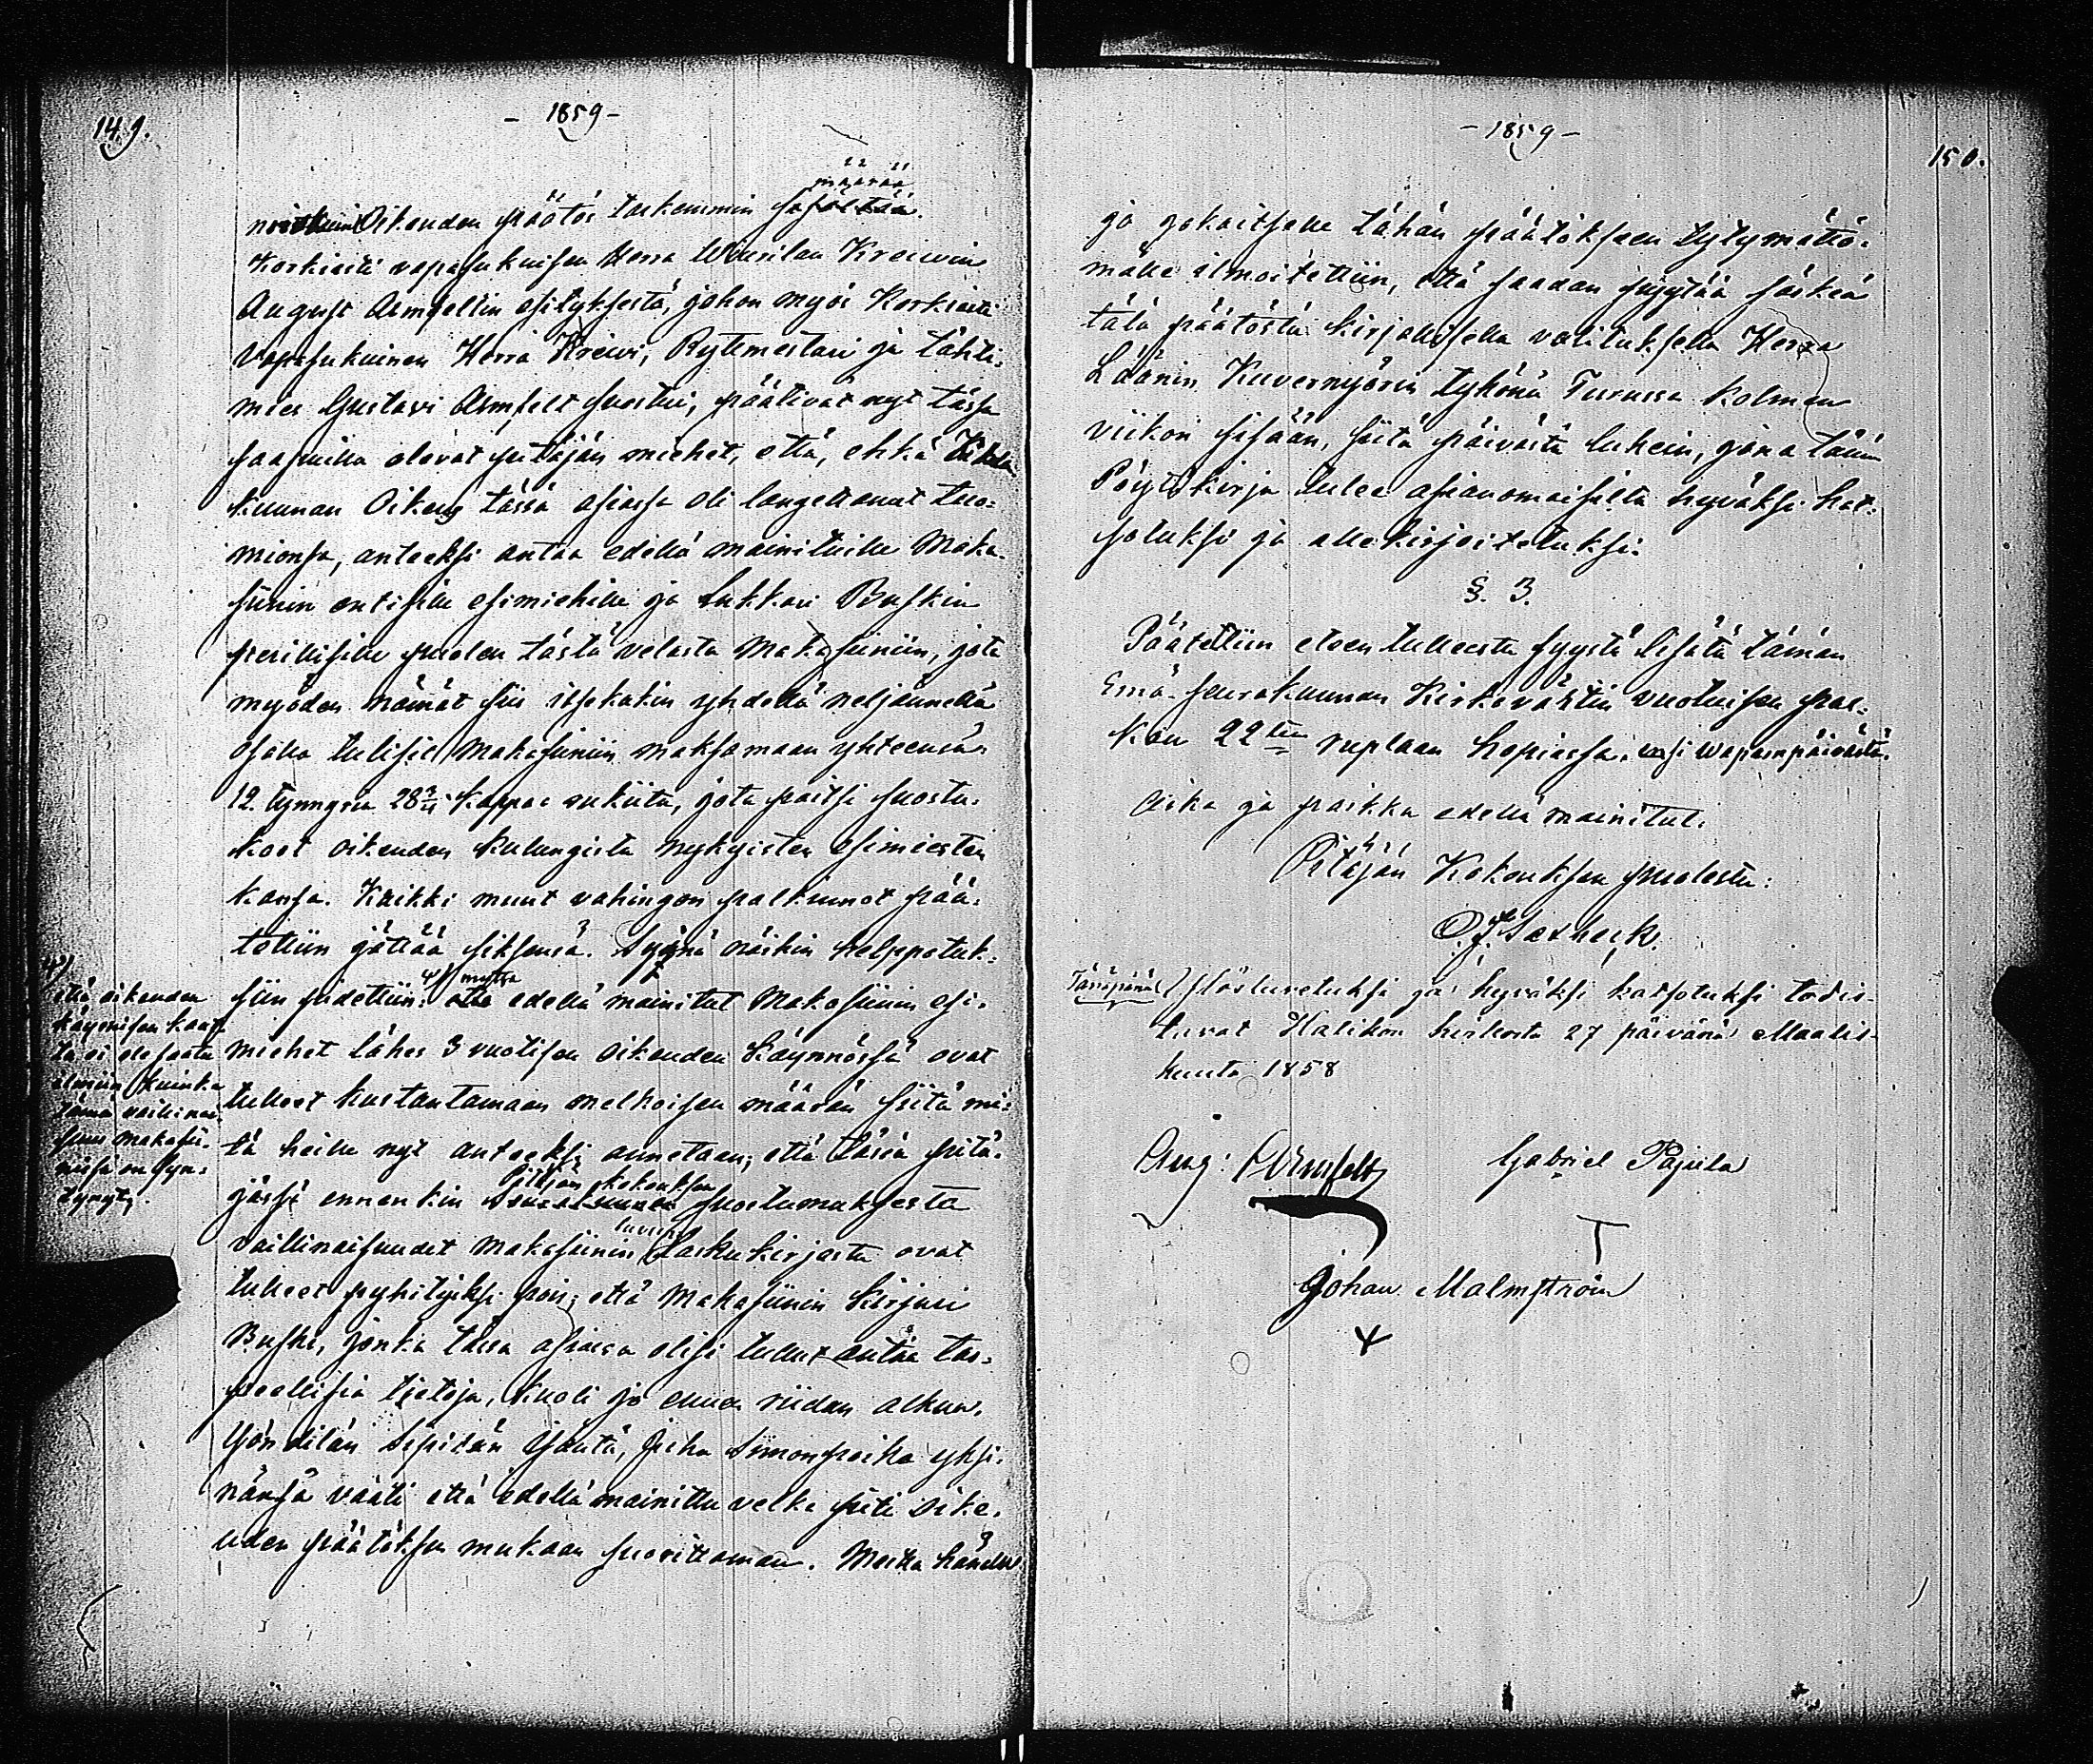 149.
- 1859 -
määrää
niinkuin Oikeuden päätös tarkemmin sisältää.
Korkiasti vapasukuisen Herra Wiurilan Kreivin
August Armfeltin esityksestä, johon myös Korkiasti
Vapasukuinen Herra Kreivi, Rytimestari ja tähti-
mies Gustavi Armfelt suostui, päätivät nyt tässä
saapuilla olevat pitäjän miehet, että, ehkä Kihla
kunnan Oikeus tässä asiassa oli langettanut tuo-
mionsa, anteeksi antaa edellä mainituille Maka-
siinin entisille esimiehille ja Lukkari Buskin
perillisille puolen tästä velasta Makasiiniin, jota
myöden nämät siis itsekukin yhdellä neljännellä
osalla tulisit Makasiiniin maksamaan yhteensä
12 tynnyriä 28 3/4 Kappaa rukiita, jota paitsi suostu-
koot oikeuden kulungista nykyisten esimiesten
kansa. Kaikki muut vahingon palkinnot pää-
tettiin jättää siksensä. Syynä näihin helppotuk-
siin pidettiin: mutta että edellä mainitut Makasiinin esi-
miehet lähes 3 vuotisen oikeuden käynnössä ovat
tulleet kustantamaan melkoisen määrän siitä mi-
tä heille nyt anteeksi annetaan; että tässä pitä-
Pitäjän kokouksen
jässä ennenkin Seurakunnan suostumuksesta
luvut
vaillinaisuudet makasiinin Laskukirjasta ovat
tulleet pyhityiksi pois; että Makasiinin Kirjuri
Buski, jonka tässä asiassa olisi tullut antaa tar-
peellisia tietoja, kuoli jo ennen riidan alkua.
Yön tilän Sepitän Isäntä, Juha Simonpoika yksi-
nänsä vaati että edellä mainittu velka piti oike-
uden päätöksen mukaan suorittaman. Mutta hänelle
että oikeuden
käymisen kautta
ei ole saatu
ilmiin kuinka
tämä vaillinai-
suus makasii-
nissa on syn-
tynyt;
- 1859 -
150.
ja jokaitselle tähän päätökseen tytymättö-
mälle ilmoitettiin, että saadan pyytää särkeä
tätä päätöstä kirjallisella valituksella Herra
Läänin Kuvernyörin tykönä Turussa kolmen
viikon sisään, siitä päivästä lukein, jona tämä
Pöytäkirja tulee asianomaisilta hyväksi kat-
sotuksi ja allekirjoitetuksi.
§. 3.
Päätettiin eteen tulleesta syystä lisätä tämän
Emä-seurakunnan Kirkovärtin vuotuisen pal-
kan 22 ten ruplaan hopiassa, vasi wapunpäivästä.
Aika ja paikka edellä mainitut.
Pitäjän Kokouksen puolesta:
Tänäpänä ylösluetuksi ja hyväksi katsotuksi todis-
tuvat Halikon kirkosta 27 päivänä Maalis-
kuuta 1858
Aug: Armfelt
Gabriel Pajula
Johan Malmström